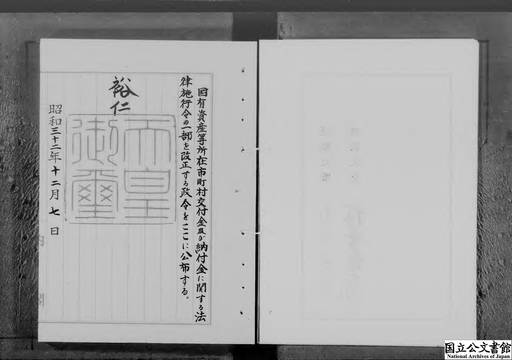 国有資産等所在市町村交付金及び納付金に関する法
律施行令の一部を改正する政令をここに公布する。
裕仁
天皇
御璽
昭和三十二年十二月七日
国立公文書館
National Archives of Japan